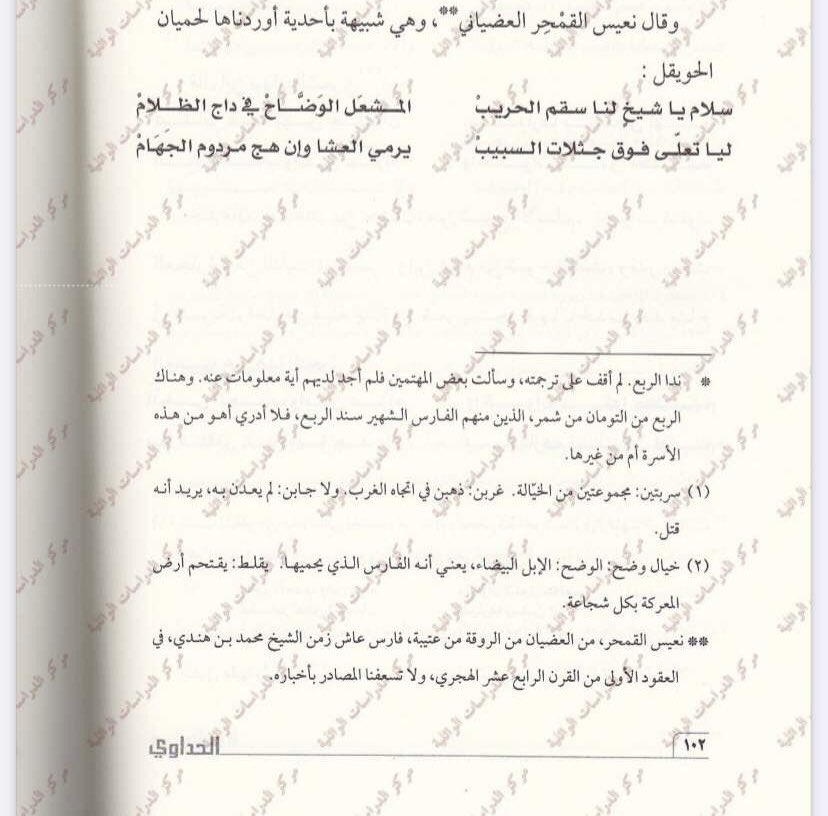 وقال نعيس القمْحِر العضياني**، وهي شبيهة بأحدية أوردناها لحميان
الحويقل :
سلام يا شيخٍ لنا سقم الحريبْ المشعَل الوَضَّاحْ في داج الظلامْ
ليا تعلّى فوق جثلات السبيبْ يرمي العشا وإن هج مردوم الجَهَامْ
* ندا الربع. لم أقف على ترجمته، وسألت بعض المهتمين فلم أجد لديهم أية معلومات عنه. وهناك
الربع من التومان من شمر، الذين منهم الفارس الشهير سند الربع، فلا أدري أهو من هذه
الأسرة أم من غيرها.
(١) سربتين: مجموعتين من الخيّالة. غربن: ذهبن في اتجاه الغرب. ولا جابن: لم يعدن به، يريد أنه
قتل.
(٢) خيال وضح: الوضح: الإبل البيضاء، يعني أنه الفارس الذي يحميها. يقلط: يقتحم أرض
المعركة بكل شجاعة.
** نعيس القمحر، من العضيان من الروقة من عتيبة، فارس عاش زمن الشيخ محمد بن هندي، في
العقود الأولى من القرن الرابع عشر الهجري، ولا تسعفنا المصادر بأخباره.
١٠٢ الحداوي